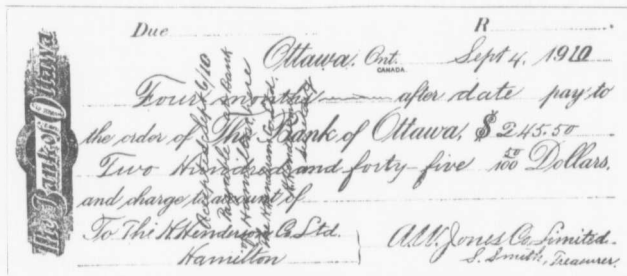 The Bank of Ottawa
Due R
Ottawa, Ont. Sept 4, 1910
CANADA
Four months after date pay to
the order of The Bank of Ottawa, $ 245.50
Two Hundred and forty five 50/100 Dollars,
and charge to account of
To The H. Henderson Co. Ltd.
Hamilton
A.W. Jones Co. Limited
S. Smith, Treasurer.
Accepted Sept 6/10
Payable at
Bank
Hamilton